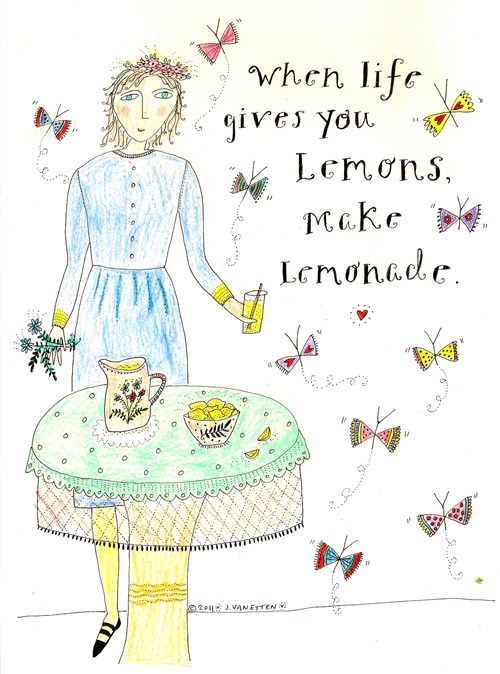 When life
gives you
Lemons,
Make
Lemonade.
©2011 J. VAN ETTEN